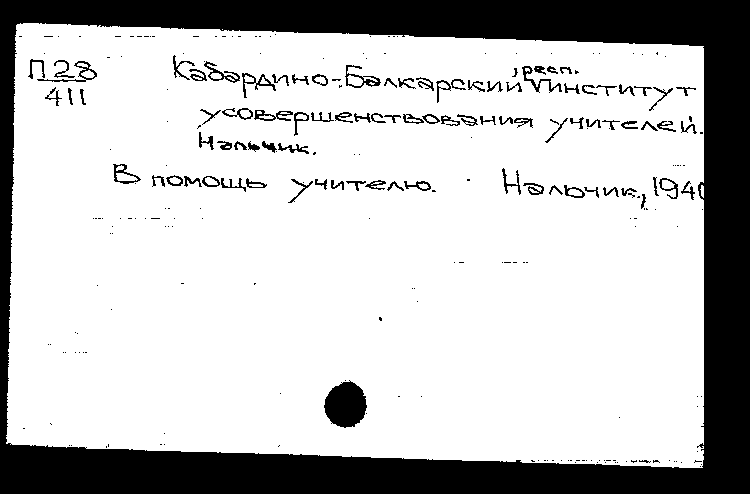 П28
411
Кабардино-Балкарский, респ. институт
усовершенствования учителей.
Нальчик.
В помощь учителю. Нальчик, 1940